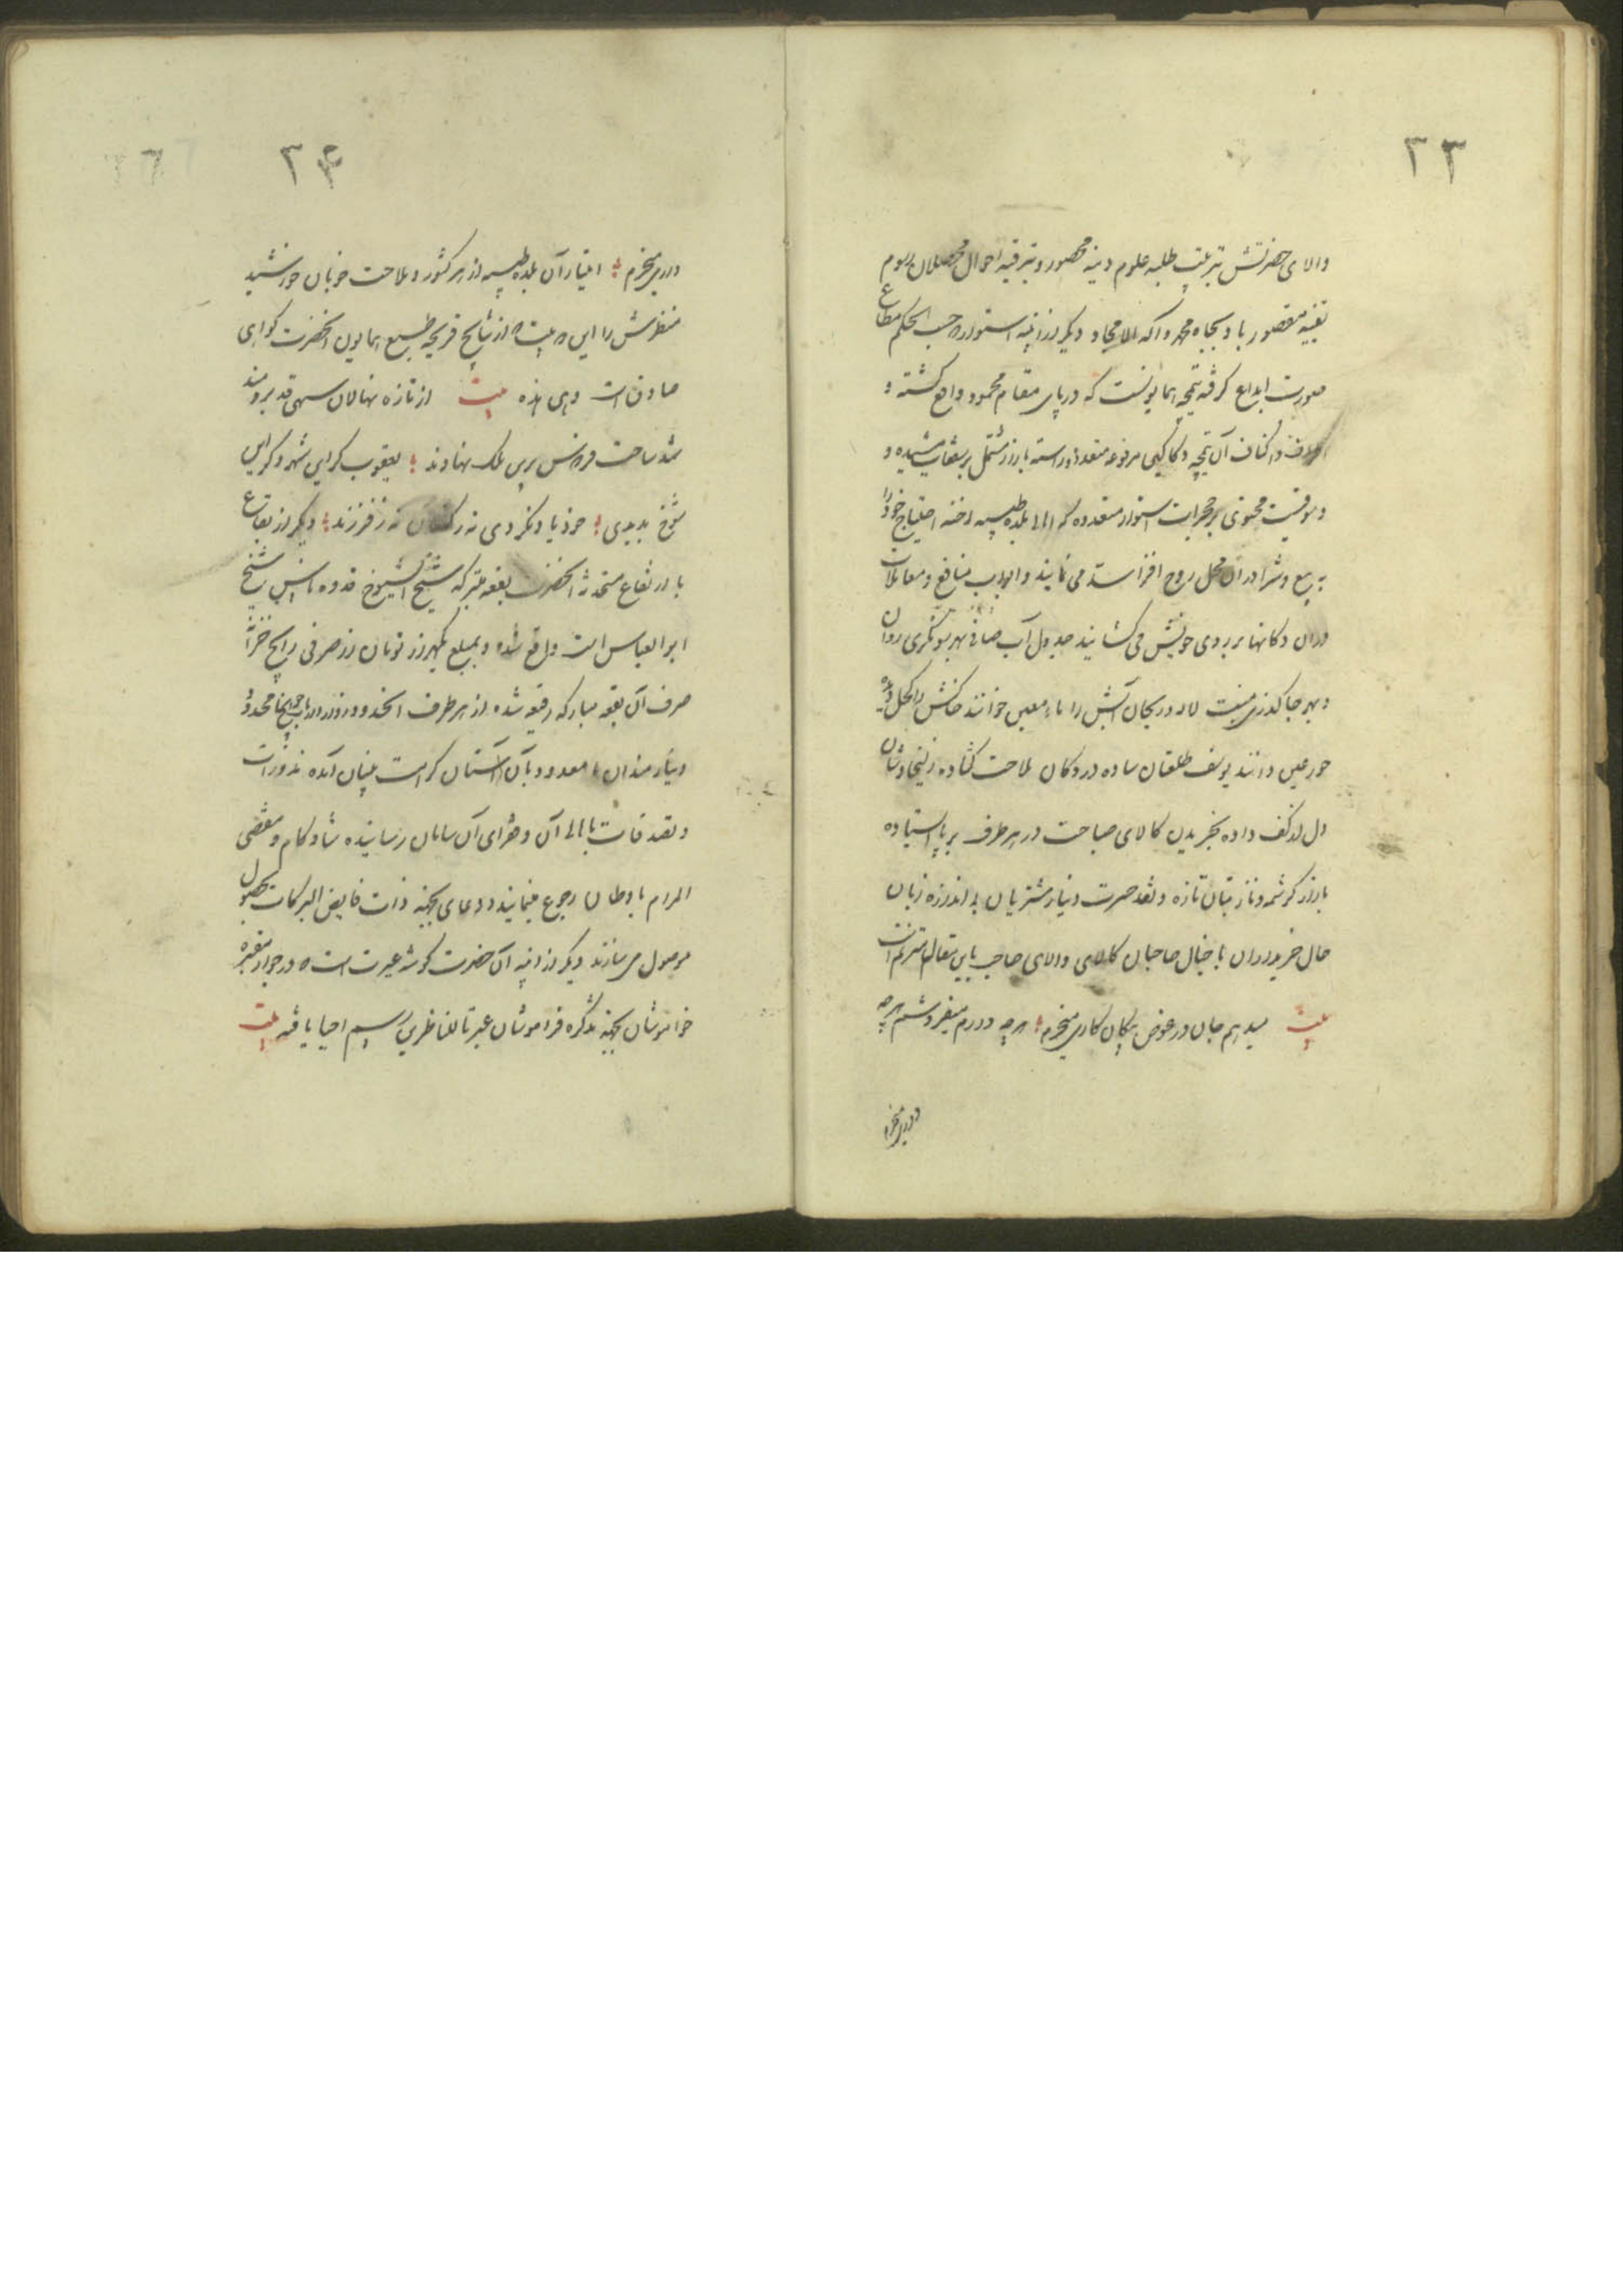 ۲۳
والای حضرتش بتربیت طلبه علوم دینیه محصور و بترقیه احوال محصلان رسوم
مقصور باد بجاه محمد و آله الامجاد و دیگر از ابنیه استوار که حسب الحکم مطاع
صورت ابداع گرفته تیمچه همایونست که در پای مقام محمود واقع گشته و
اطراف و اکناف آن تیمچه دکاکین مرفوعه متعدده و راسته بازار مشتمل بر سقف مشیده و
محتوی بر حجرات استوار متعدده که اهالی بلده طیبه احتیاج خود را
به بیع و شرا در آن محل روح افزا می نمایند و ابواب منافع و معاملات
در آن دکانها بر روی خویش می گشایند جدول آب صافی بهر سو نگری روان
و بهر جا گذری لاله و ریحان آبش را ماء معین خوانند خاکش را کحل دیده
حور عین دانند یوسف طلعتان ساده در دکان ملاحت گشاده زلیخا وشان
دل از کف داده بخریدن کالای صباحت در هر طرف بر پا استاده
بازار کرشمه و ناز بتان تازه و نقد حسرت و نیاز مشتریان بی اندازه زبان
حال خریداران با خیال صاحبان کالای والای صاحب باین مقال مترنم است
بیت میدهم جان در عوض پیکان کاری میخرم هر چه دارم میفروشم هر چه
داری میخرم
۲۴
داری میخرم امتیاز آن بلده طیبه از هر کشور و ملاحت خوبان خورشید
منظرش را این بیت که از نتایج قریحه طبع همایون آنحضرت گواهی
صادق است وهی هذه بیت از تازه نهالان سهی قد برومند
شد ساحت فردوس برین ملک نهاوند یعقوب گر این شهر و گر این
شوخ بدیدی خود یاد نکردی نه ز کنعان نه ز فرزند دیگر از بقاع
با ارتفاع مستحدثه آنحضرت بقعه متبرکه شیخ الشیوخ قدوه شیخ
ابو العباس است واقع شده و بمبلغ یکهزار تومان از صرفی رایج خزانه
صرف آن بقعه مبارکه رفیعه شده از هر طرف
و نیازمندان نامعدود بآن آستان کرامت بنیان آمده نذورات
و تصدقات باهالی آن و فقرای آن سامان رسانیده شادکام و مقضی
المرام باوطان رجوع مینمایند و دعای بجهة ذات فایض البرکات بحصول
موصول می سازند دیگر از ابنیه آن حضرت گوشه عبرت است که در جوار مقبره
خاموشان بجهة تذکره فراموشان عبرتا للناظرین رسم احیا یافته بیت